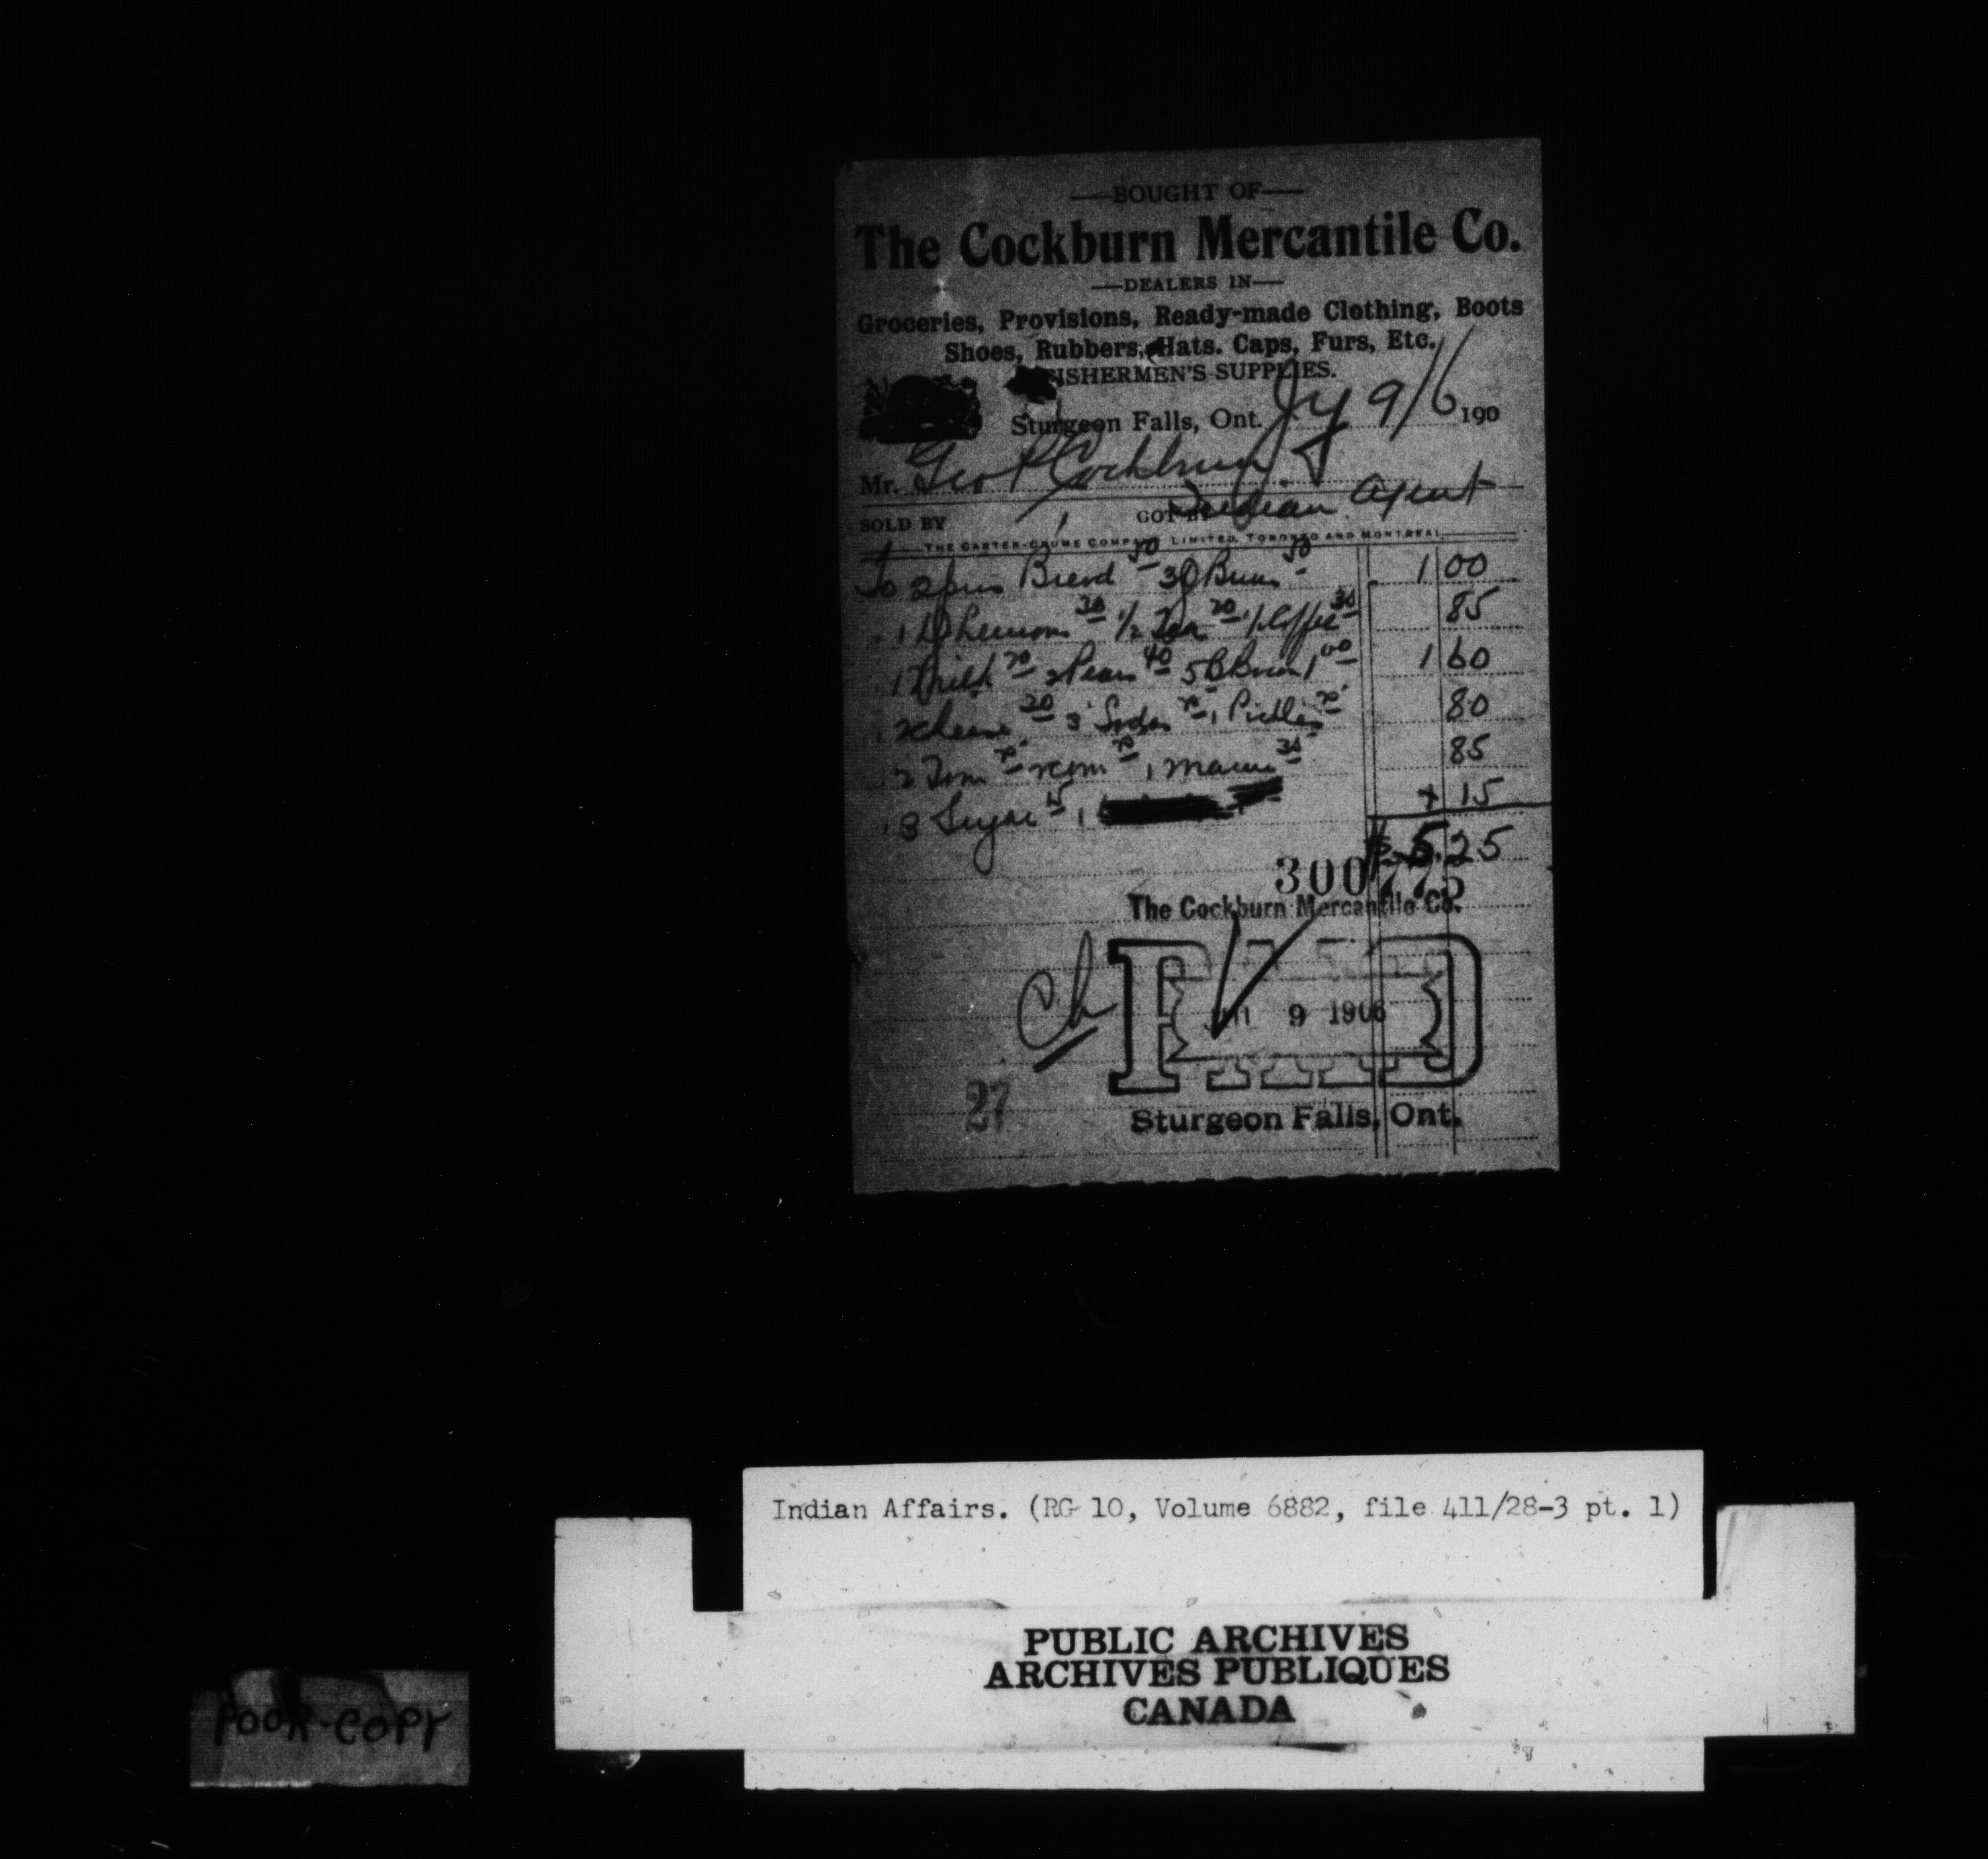 —BOUGHT OF—
The Cockburn Mercantile Co.
—DEALERS IN—
Groceries, Provisions, Ready-made Clothing, Boots
Shoes, Rubbers, Hats. Caps, Furs, Etc.
FISHERMEN'S SUPPLIES.
Sturgeon Falls, Ont. Jy 9/6 190
Mr. Geo P Cockburn
SOLD BY GOT BY Indian Agent
THE CARTER-CRUME COMPANY LIMITED, TORONTO AND MONTREAL
To Bread 50 30 Buns 50 1 00
1 Lemons 30 1/2 Tea 20 1 Coffee 35 85
1 20 2 Pears 40 5 1 00 1 60
2 Cheese 30 3 Sodas 25 1 Pickles 25 80
2 Tom 25 25 1 35 85
3 Sugar 15 1 + 15
$ 5.25
300775
The Cockburn Mercantile Co.
Ch
PAID
9 1906
27
Sturgeon Falls, Ont.
Indian Affairs. (RG 10, Volume 6882, file 411/28-3 pt. 1)
PUBLIC ARCHIVES
ARCHIVES PUBLIQUES
CANADA
POOR-COPY